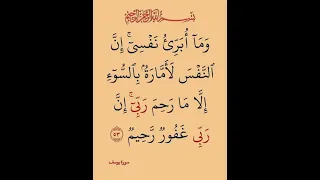 بِسْمِ ٱللَّهِ ٱلرَّحْمَٰنِ ٱلرَّحِيمِ
وَمَآ أُبَرِّئُ نَفْسِىٓ ۚ إِنَّ
ٱلنَّفْسَ لَأَمَّارَةٌۢ بِٱلسُّوٓءِ
إِلَّا مَا رَحِمَ رَبِّىٓ ۚ إِنَّ
رَبِّى غَفُورٌ رَّحِيمٌ ٥٣
سورة يوسف